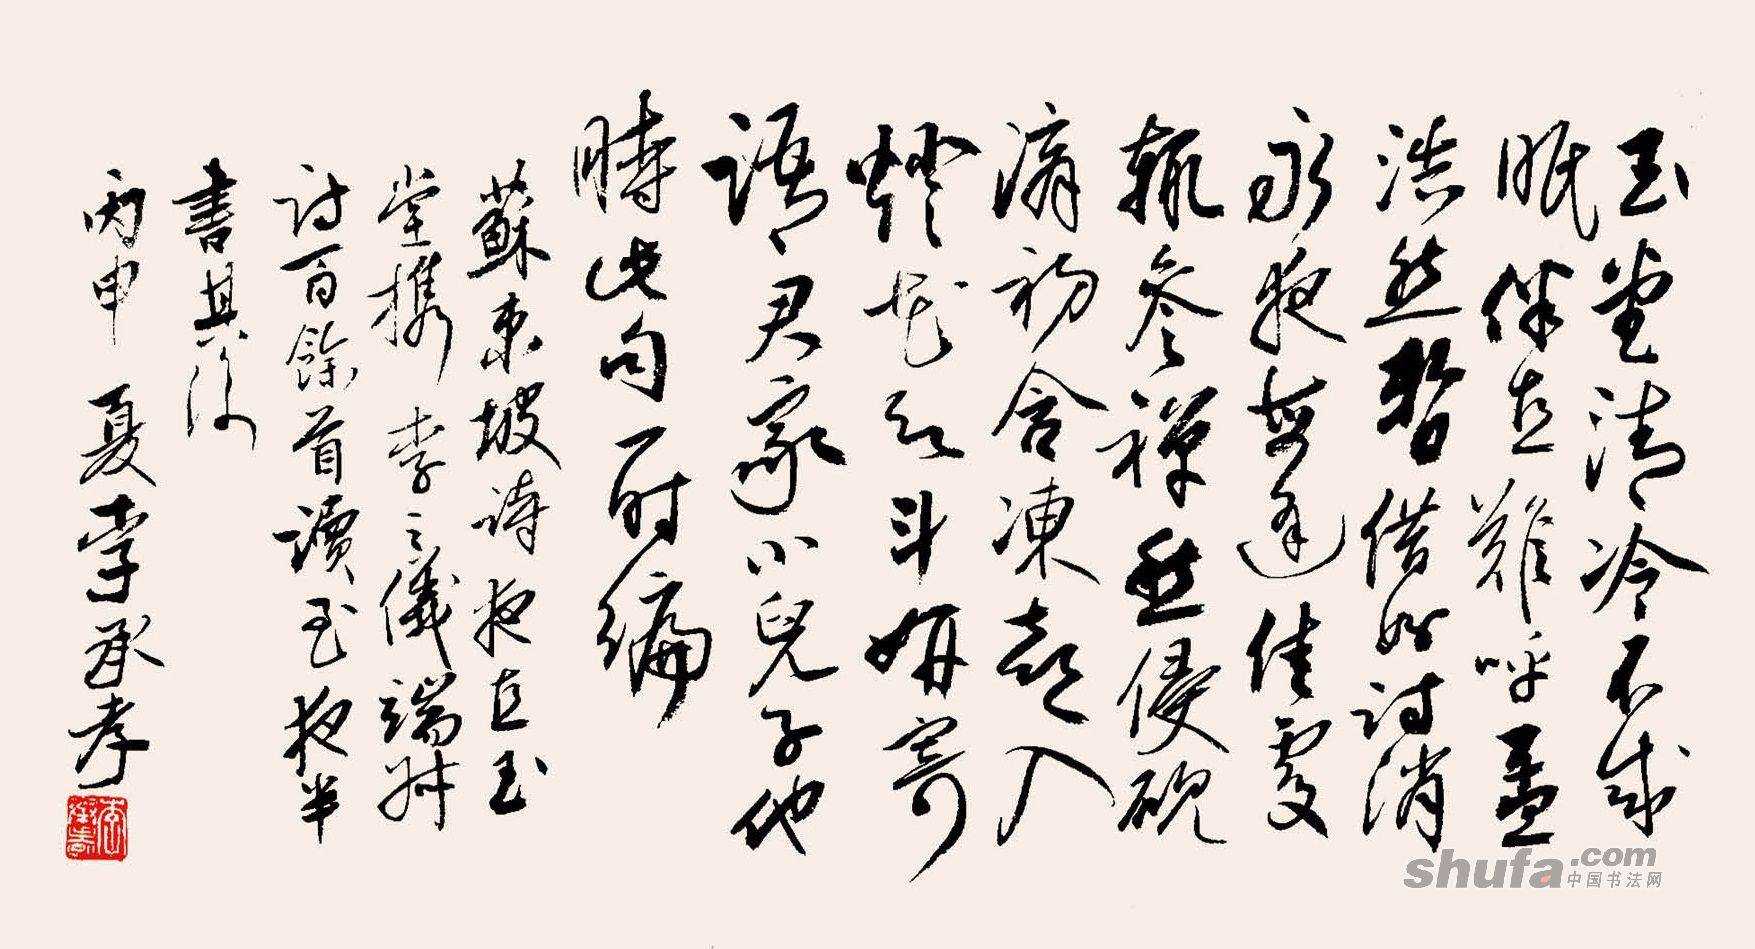 玉堂清冷不成
眠伴直難呼孟
浩然暫借好詩消
永夜每逢佳處
輒參禪愁侵硯
滴初含凍喜入
燈花欲斗妍寄
語君家小兒子他
時此句一时編
蘇東坡詩夜直玉
堂攜李之儀端叔
詩百餘首讀至夜半
書其後
丙申夏李承孝
shufa.com
中国书法网